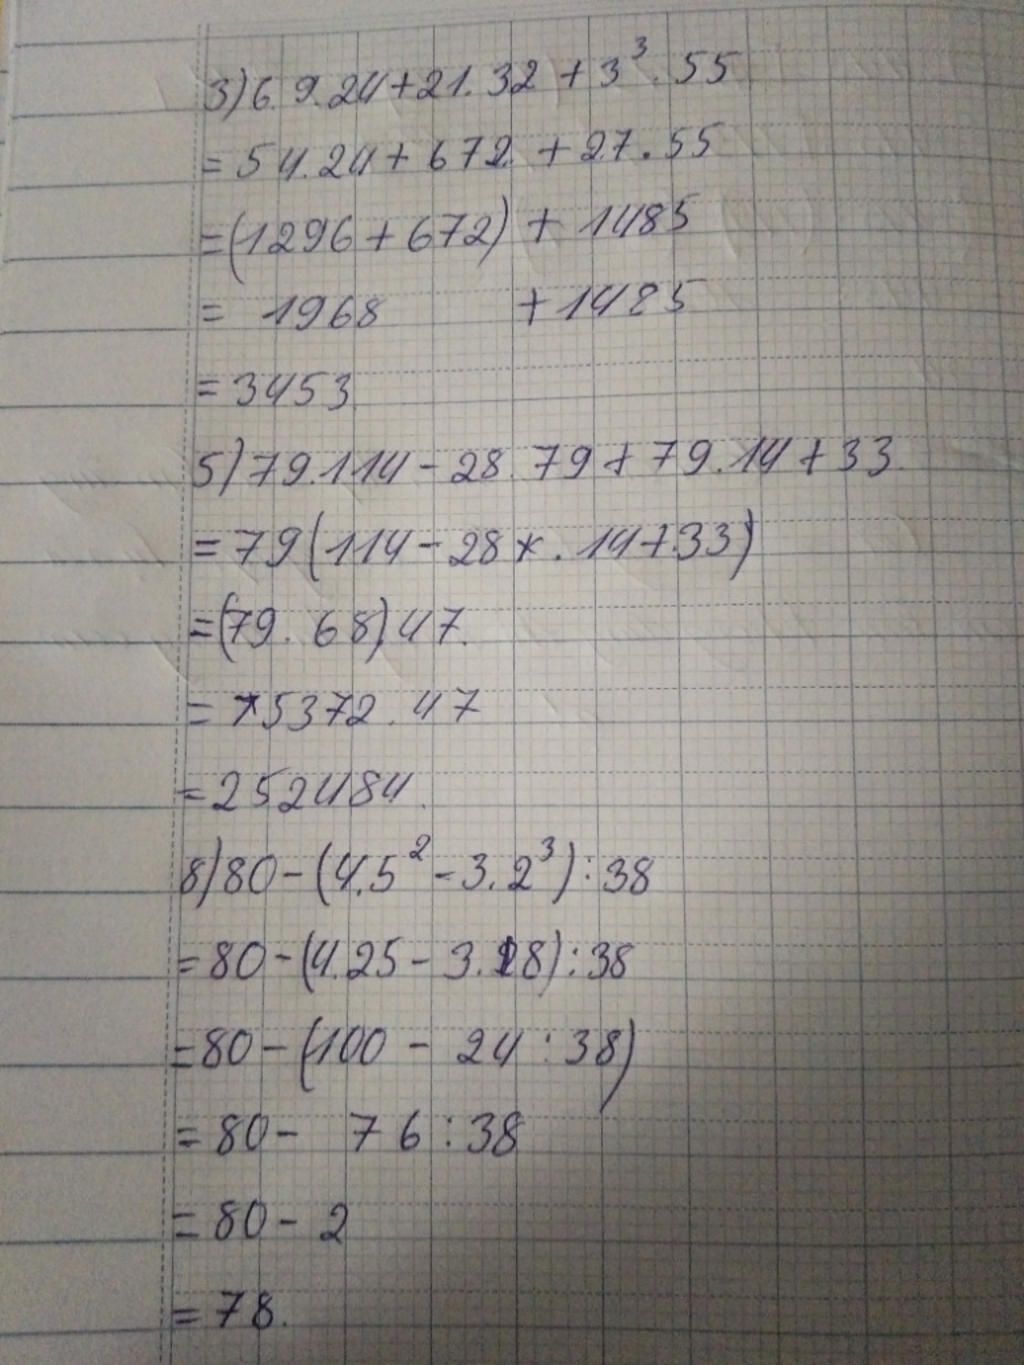 3) 6.9.24+21.32+3³.55
=54.24+672+27.55
=(1296+672)+1485
= 1968 +1485
=3453
5) 79.114-28.79+79.14+33.
=79(114-28+.14+33)
=(79.68)47.
=5372.47
=252484.
8) 80-(4.5²-3.2³):38
=80-(4.25-3.8):38
=80-(100-24:38)
=80- 76:38
=80-2
=78.